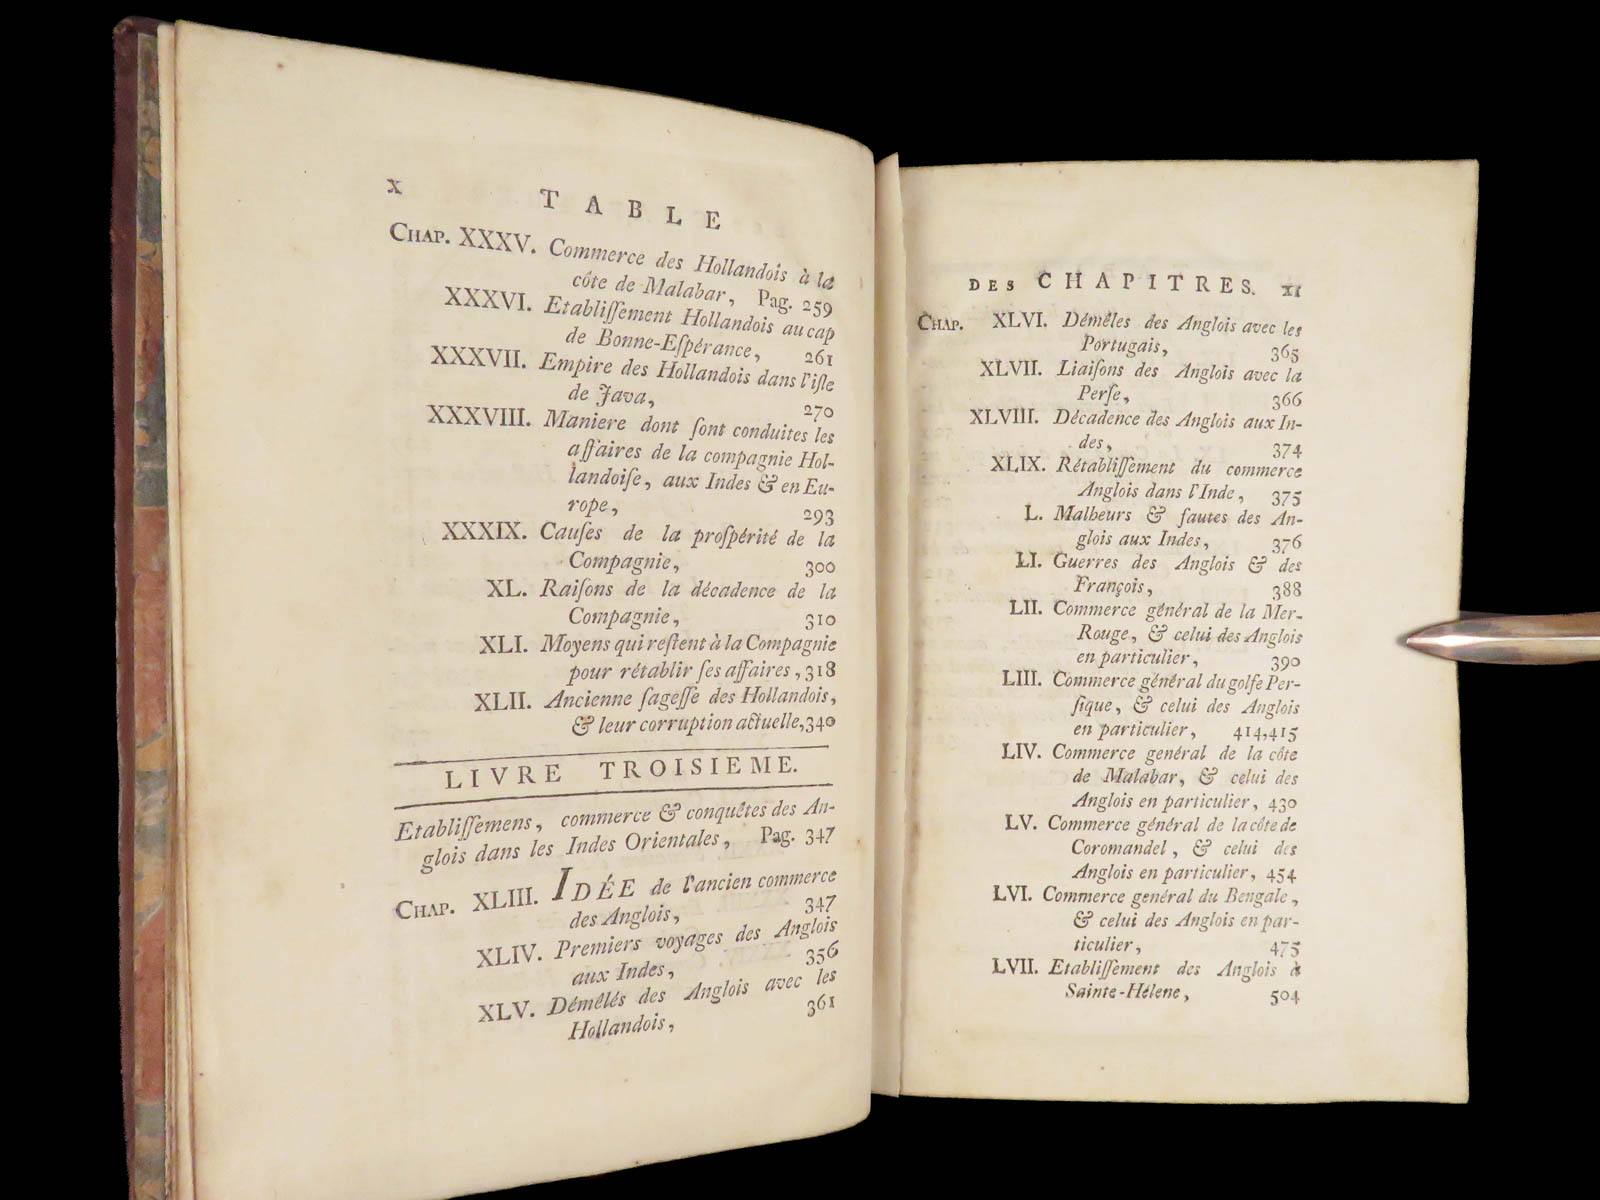 x TABLE
CHAP. XXXV. Commerce des Hollandois à la
côte de Malabar, Pag. 259
XXXVI. Etabliſſement Hollandois au cap
de Bonne-Eſpérance, 261
XXXVII. Empire des Hollandois dans l'iſle
de Java, 270
XXXVIII. Maniere dont ſont conduites les
affaires de la compagnie Hol-
landoiſe, aux Indes & en Eu-
rope, 293
XXXIX. Cauſes de la proſpérité de la
Compagnie, 300
XL. Raiſons de la décadence de la
Compagnie, 310
XLI. Moyens qui reſtent à la Compagnie
pour rétablir ſes affaires, 318
XLII. Ancienne ſageſſe des Hollandois,
& leur corruption actuelle, 340
LIVRE TROISIEME.
Etabliſſemens, commerce & conquêtes des An-
glois dans les Indes Orientales, Pag. 347
CHAP. XLIII. IDÉE de l'ancien commerce
des Anglois, 347
XLIV. Premiers voyages des Anglois
aux Indes, 356
XLV. Démêlés des Anglois avec les
Hollandois, 361
DES CHAPITRES. xi
CHAP. XLVI. Démêles des Anglois avec les
Portugais, 365
XLVII. Liaiſons des Anglois avec la
Perſe, 366
XLVIII. Décadence des Anglois aux In-
des, 374
XLIX. Rétabliſſement du commerce
Anglois dans l'Inde, 375
L. Malheurs & fautes des An-
glois aux Indes, 376
LI. Guerres des Anglois & des
François, 388
LII. Commerce général de la Mer-
Rouge, & celui des Anglois
en particulier, 390
LIII. Commerce général du golfe Per-
ſique, & celui des Anglois
en particulier, 414,415
LIV. Commerce genéral de la côte
de Malabar, & celui des
Anglois en particulier, 430
LV. Commerce général de la côte de
Coromandel, & celui des
Anglois en particulier, 454
LVI. Commerce général du Bengale,
& celui des Anglois en par-
ticulier, 475
LVII. Etabliſſement des Anglois à
Sainte-Hélene, 504